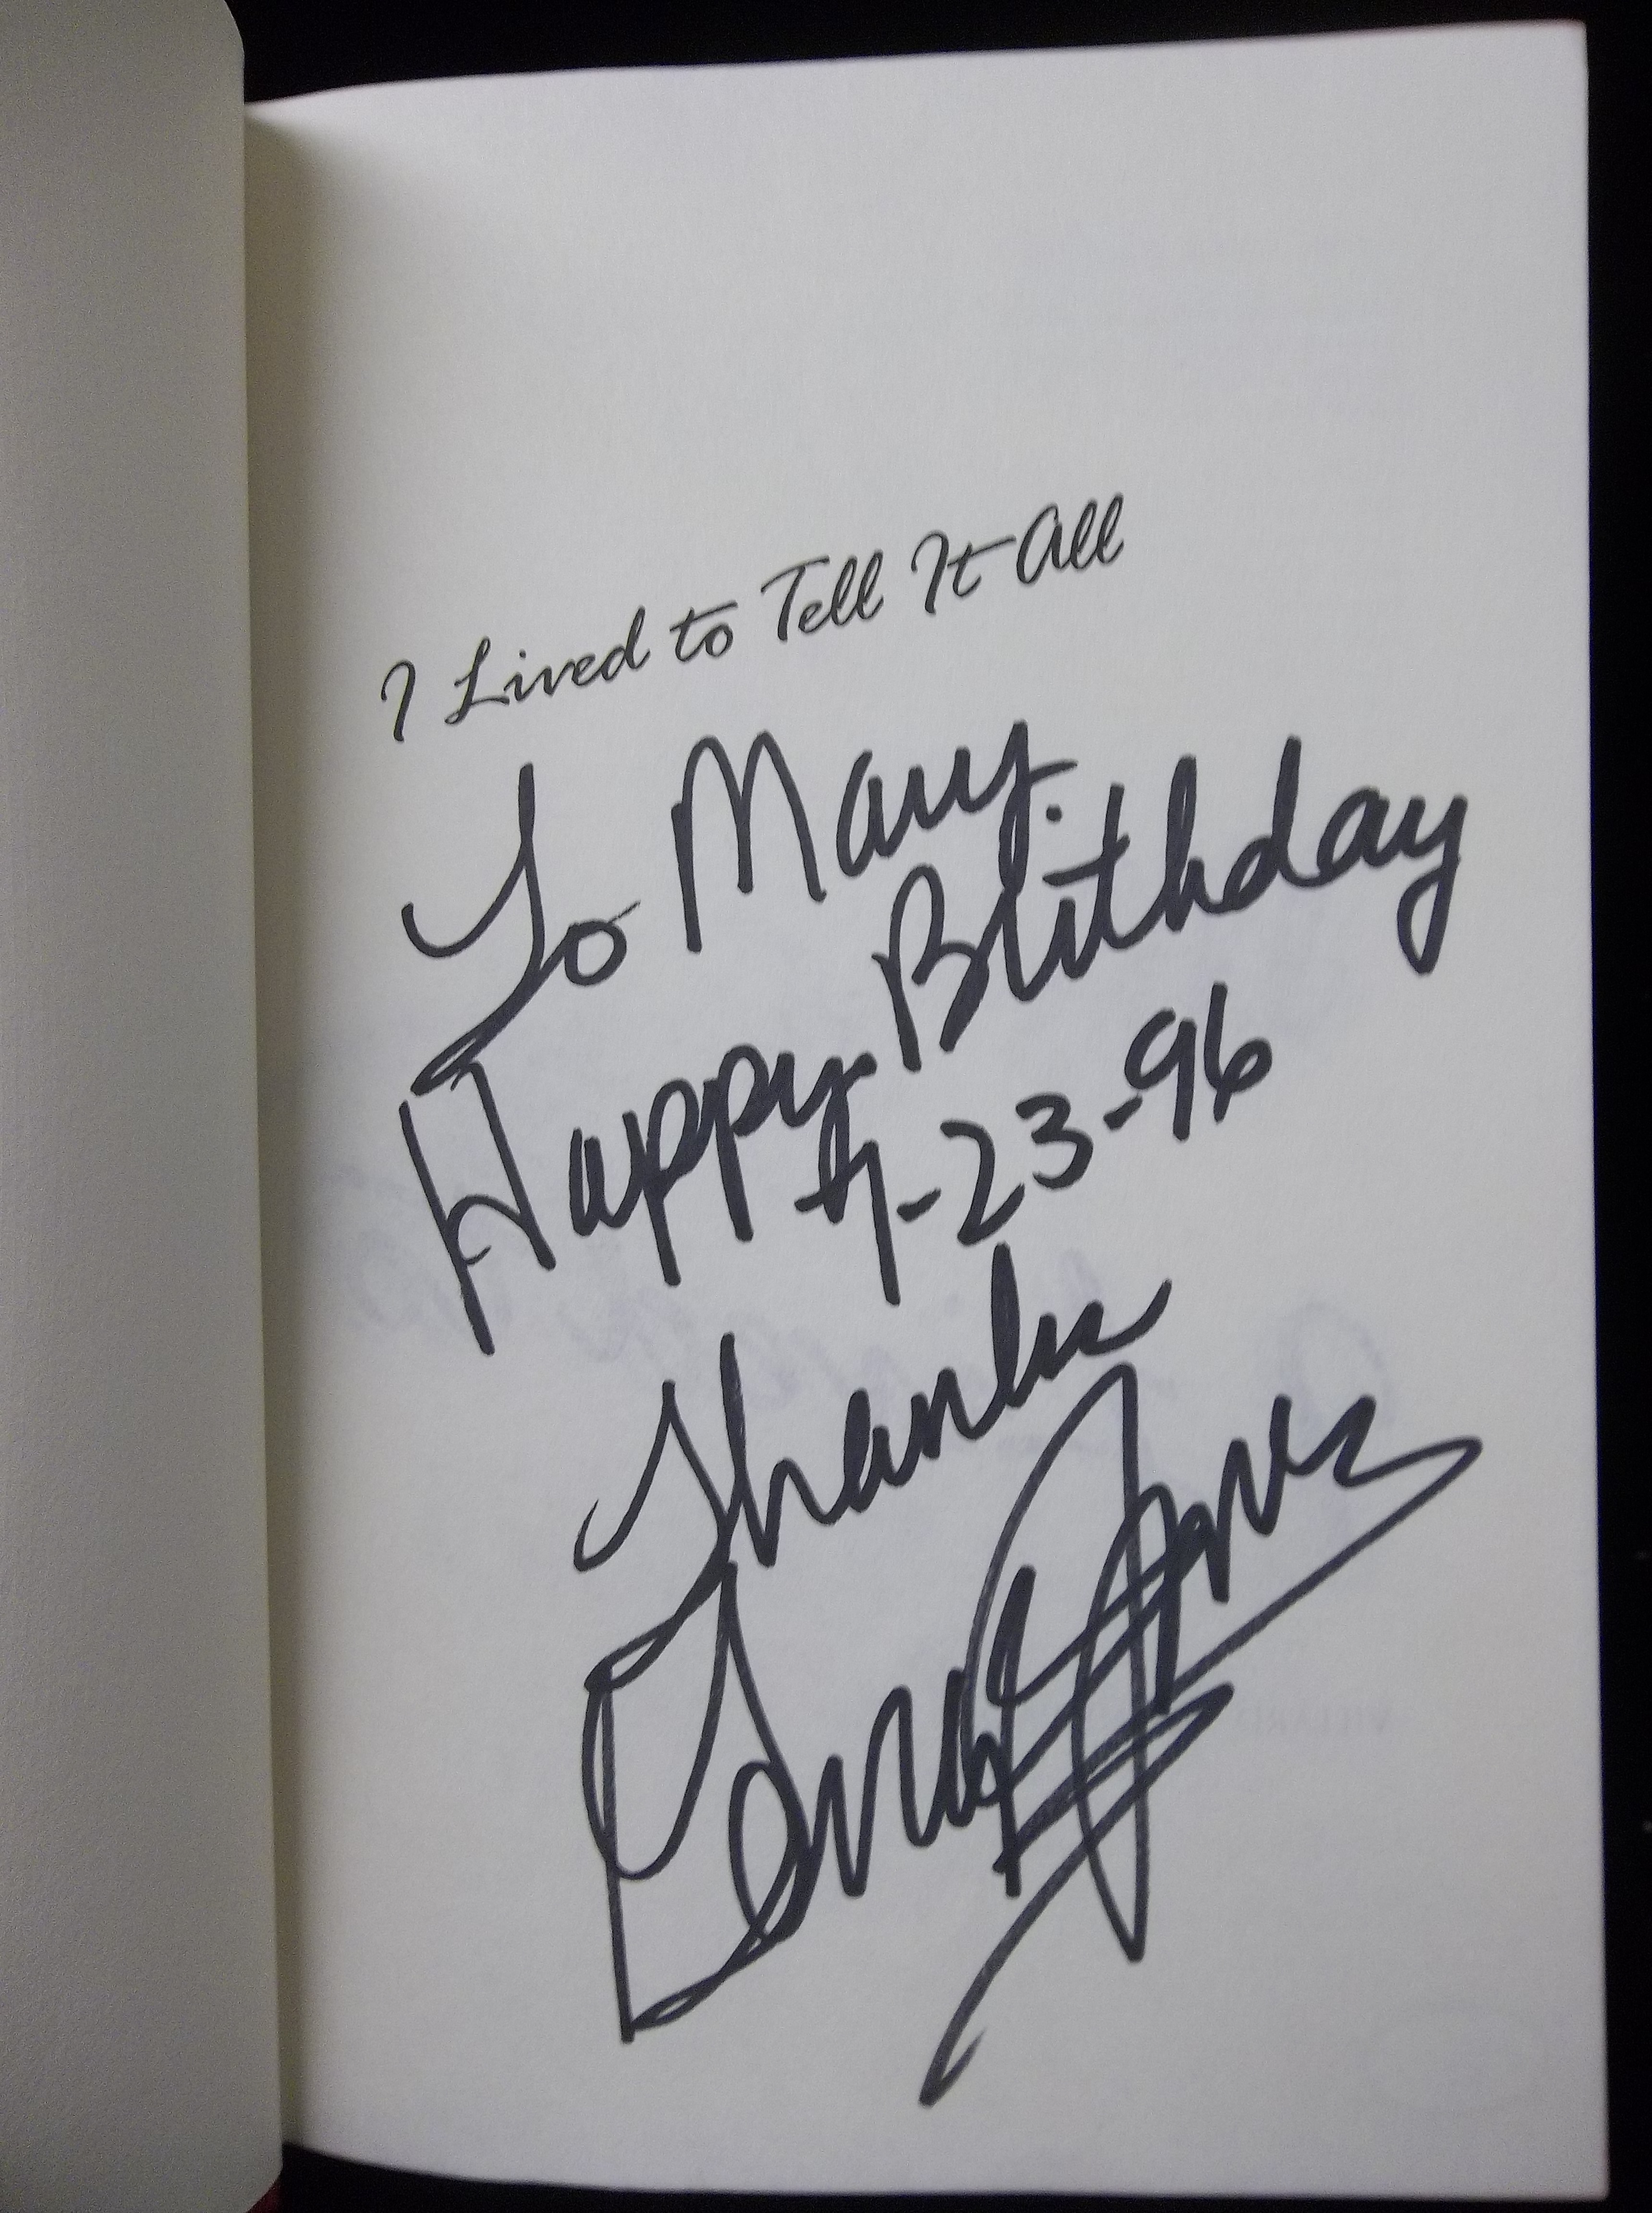 I Lived to Tell It All
To Mary.
Happy Birthday
7-23-96
Thanks
George Jones